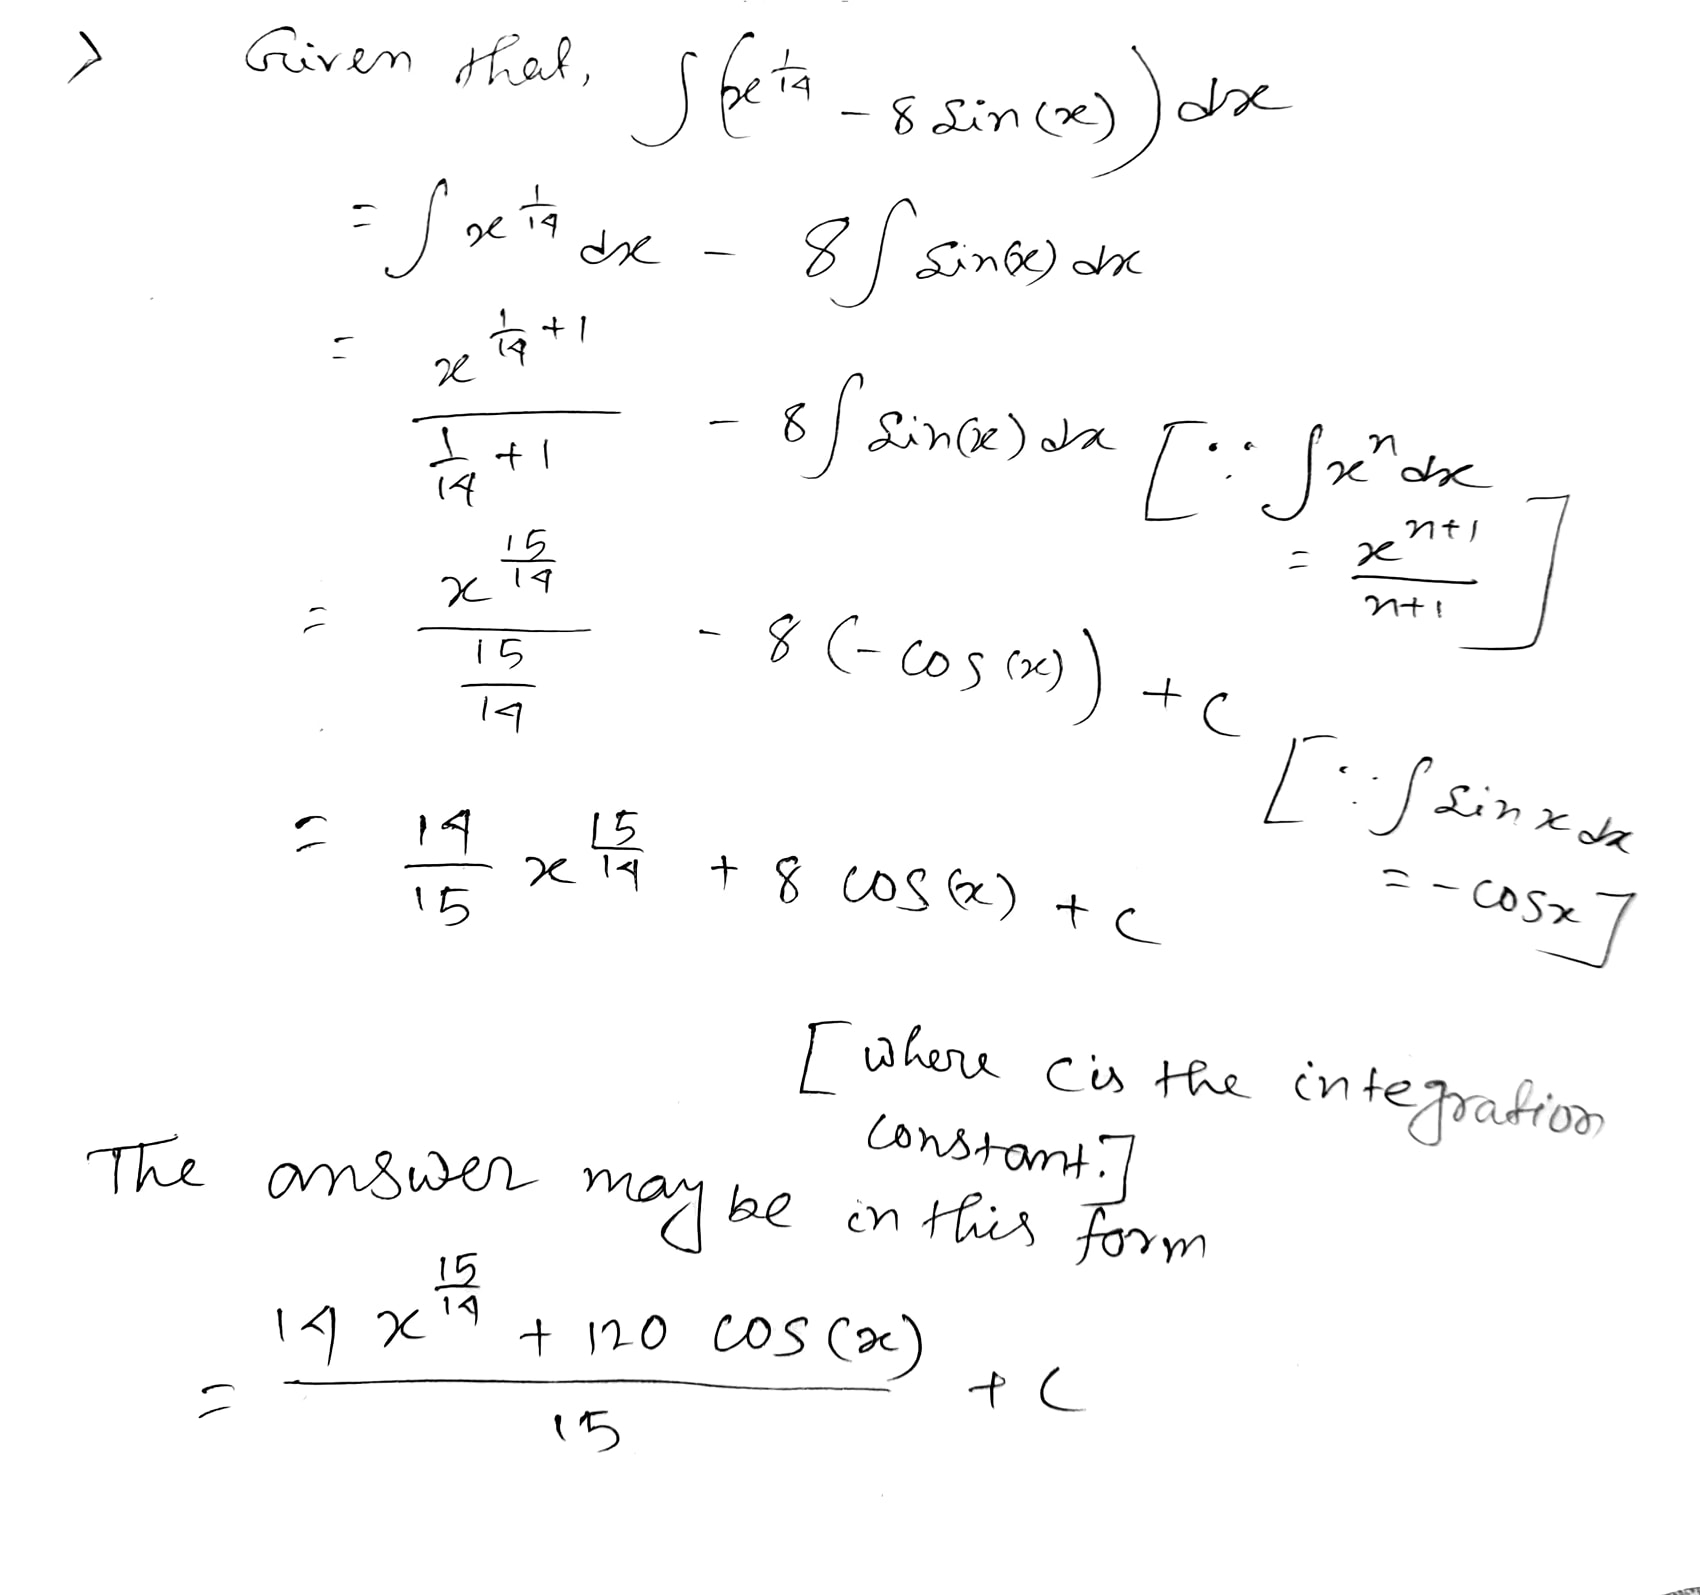 > Given that, ∫(x^{1/14} - 8 sin(x)) dx
= ∫ x^{1/14} dx - 8 ∫ sin(x) dx
= x^{1/14 + 1} / (1/14 + 1) - 8 ∫ sin(x) dx [∵ ∫ x^n dx = x^{n+1} / (n+1)]
= x^{15/14} / (15/14) - 8 (- cos(x)) + c
[∵ ∫ sin x dx = - cos x]
= 14/15 x^{15/14} + 8 cos(x) + c
[where c is the integration
constant.]
The answer may be in this form
= (14 x^{15/14} + 120 cos(x)) / 15 + c